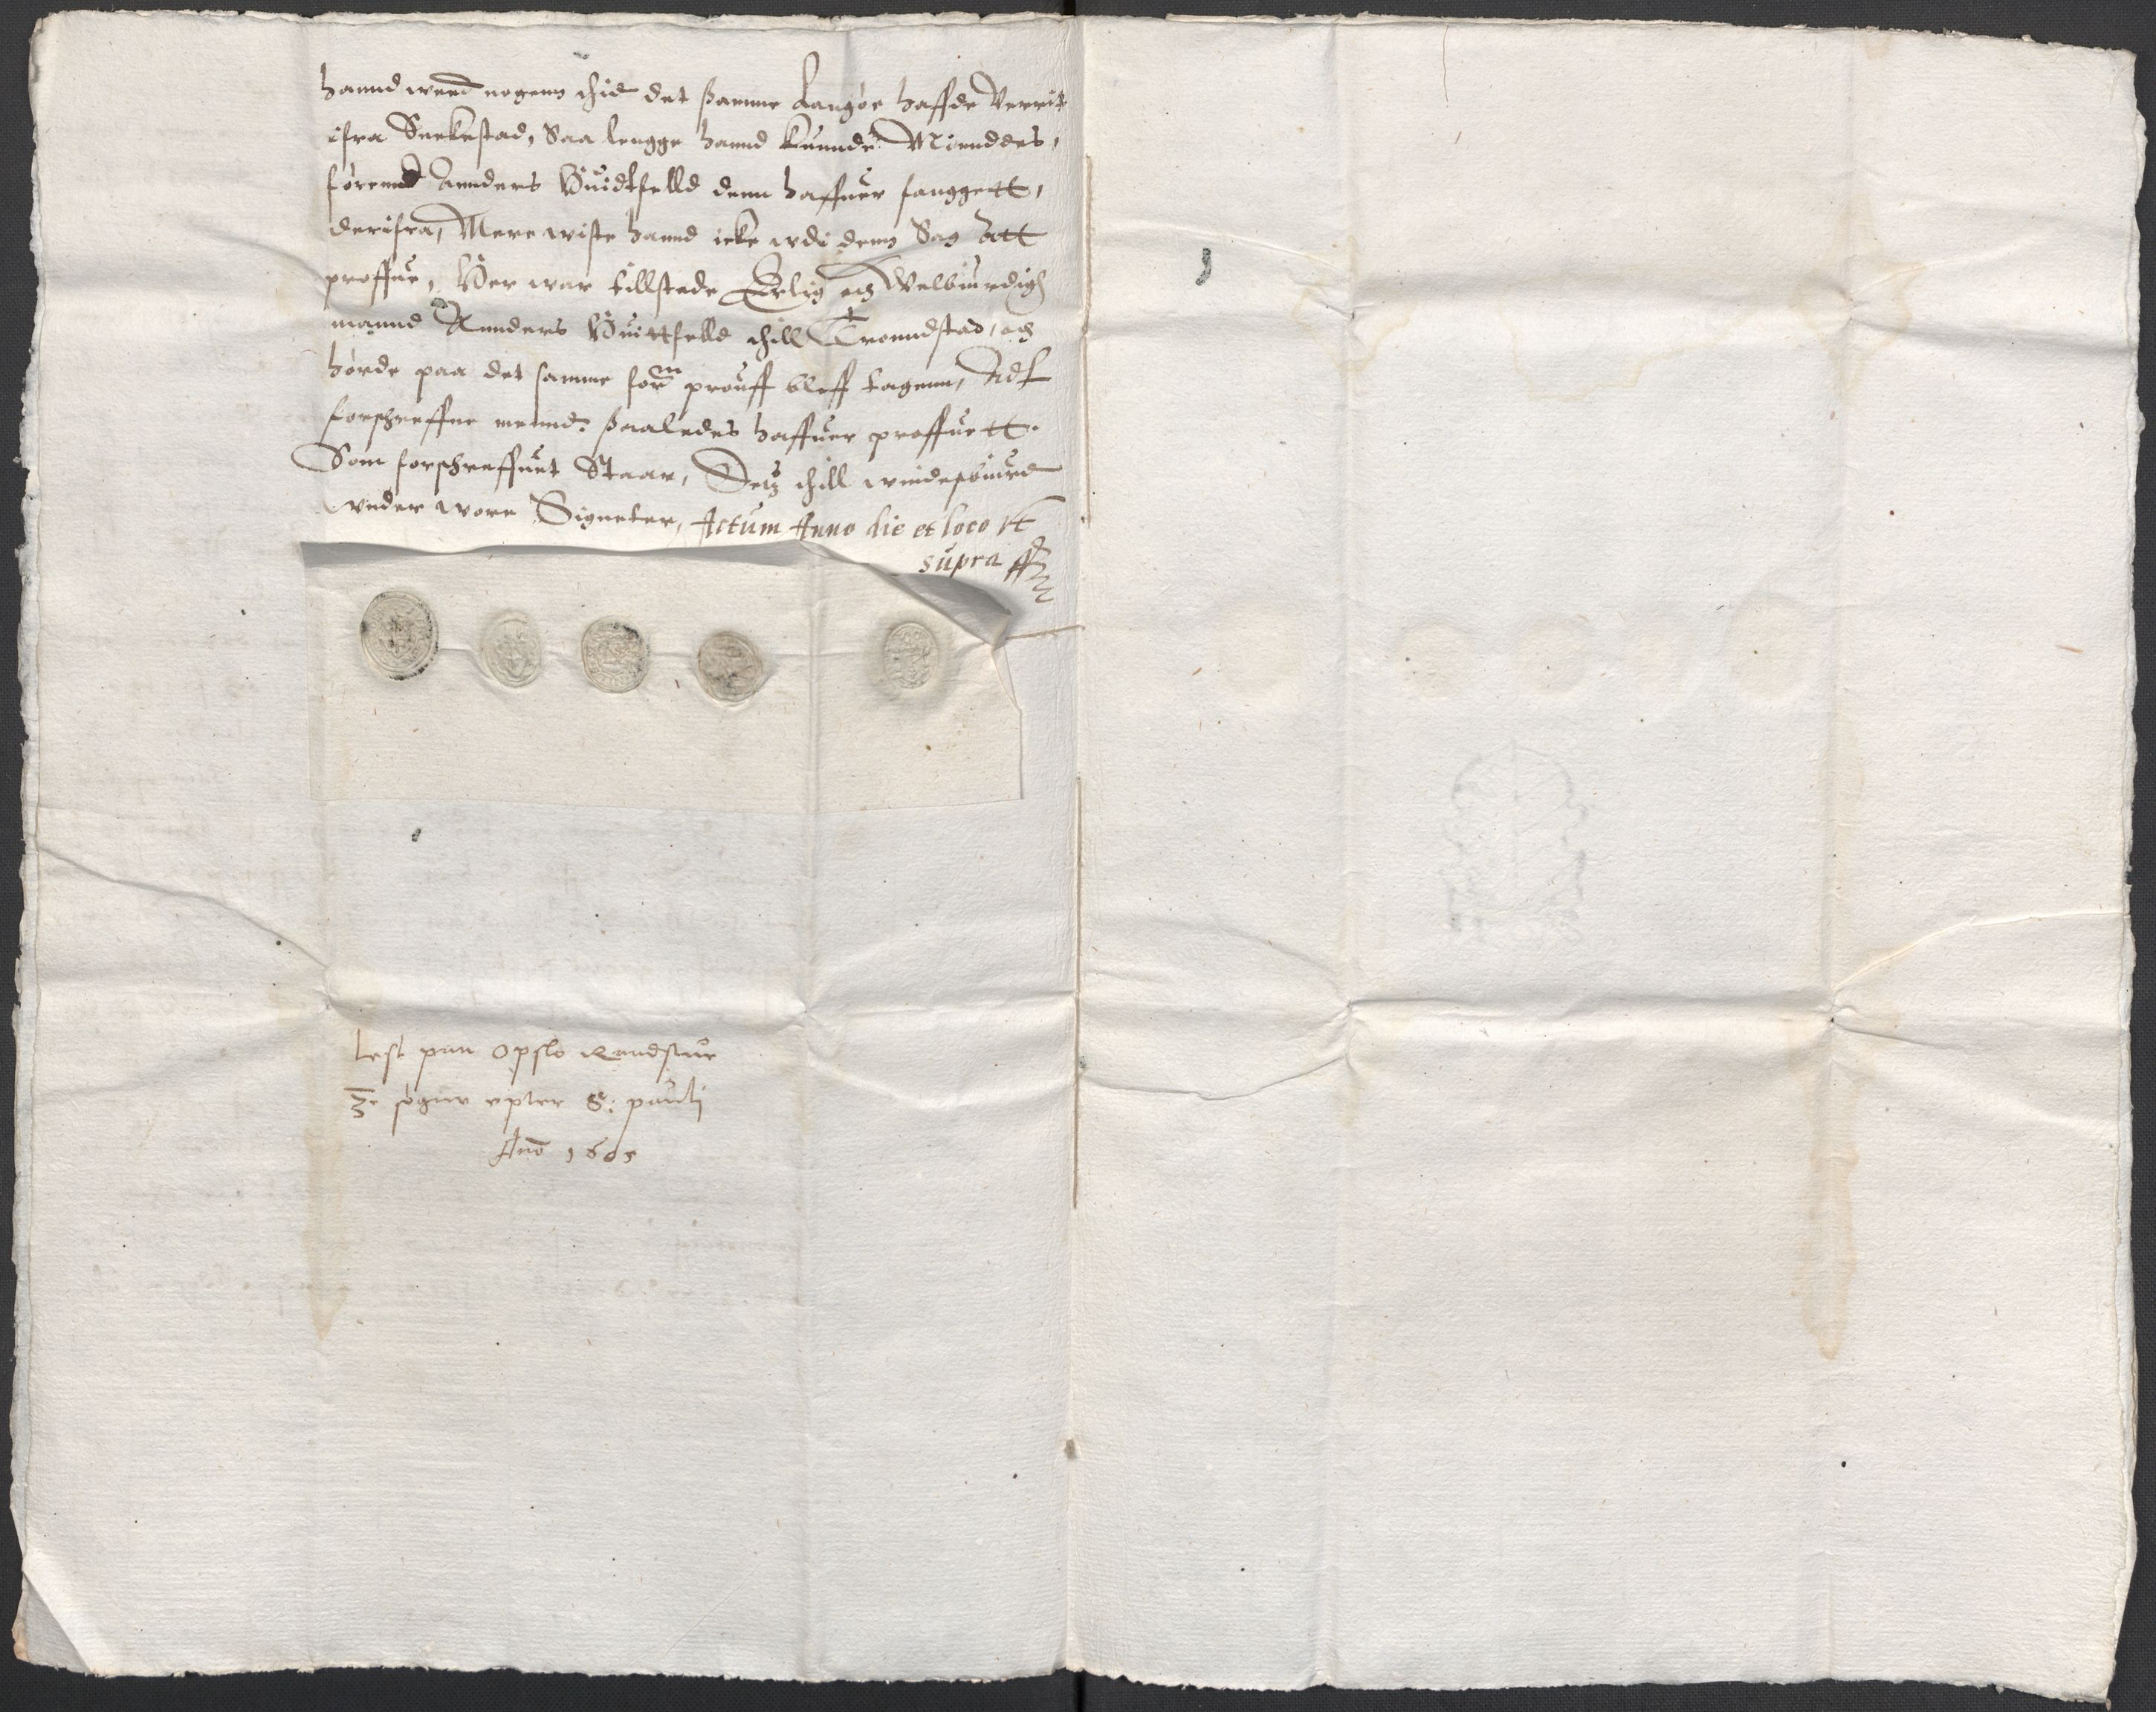 hannd weed nogenn thid det ßamme Langøe haffde Verrit
ifra Seekestad, Saa lengge hannd kunde Mienndes,
førennd Annders Huidtfelld denn haffuer fanggett,
derifra, Mere wiste hannd icke vdi denn Sag att
proffue, Her war tillstede Erlig och Welbiurdigh
mannd Annders Huittfelld thill Tronndstad, och
hørde paa det samme forne prouff bleff tagenn, Adt
forschreffne mennd. ßaaledes haffuer proffuett.
Som forschreffuet Staar, Dets thill windesbiurd
vnder wore Signeter, Actum Anno die et loco vt
supra
Lest paa Opslo Raadstue
3e søgne epter S: pauli
Ano 1605